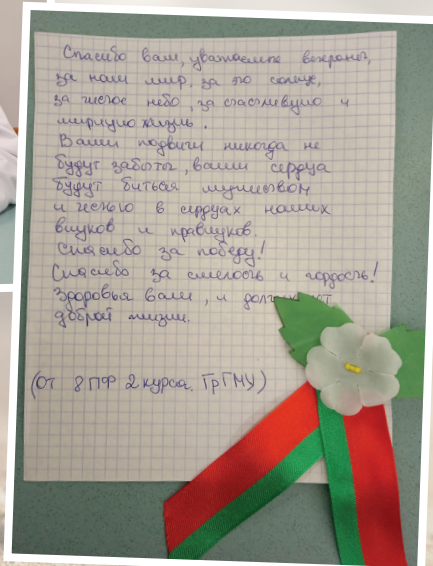 Спасибо вам, уважаемые ветераны,
за наш мир, за это солнце,
за чистое небо, за счастливую и
мирную жизнь.
Ваши подвиги никогда не
будут забыты, ваши сердца
будут биться мужеством
и честью в сердцах наших
внуков и правнуков.
Спасибо за победу!
Спасибо за смелость и гордость!
Здоровья вам, и долгих лет
доброй жизни.
(от 8 ПФ 2 курса ГрГМУ)